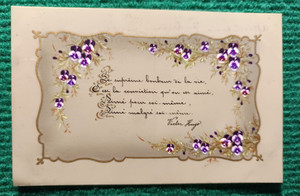 Le suprême bonheur de la vie,
C'est la conviction qu'on est aimé,
Aimé pour soi-même,
Aimé malgré soi-même.
Victor Hugo